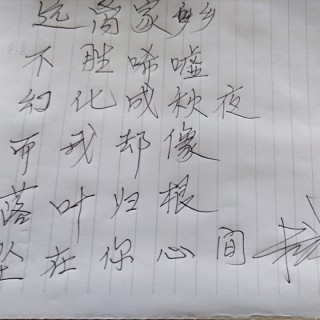 远离家乡
不胜唏嘘
幻化成秋夜
而我却像
落叶归根
坠在你心间